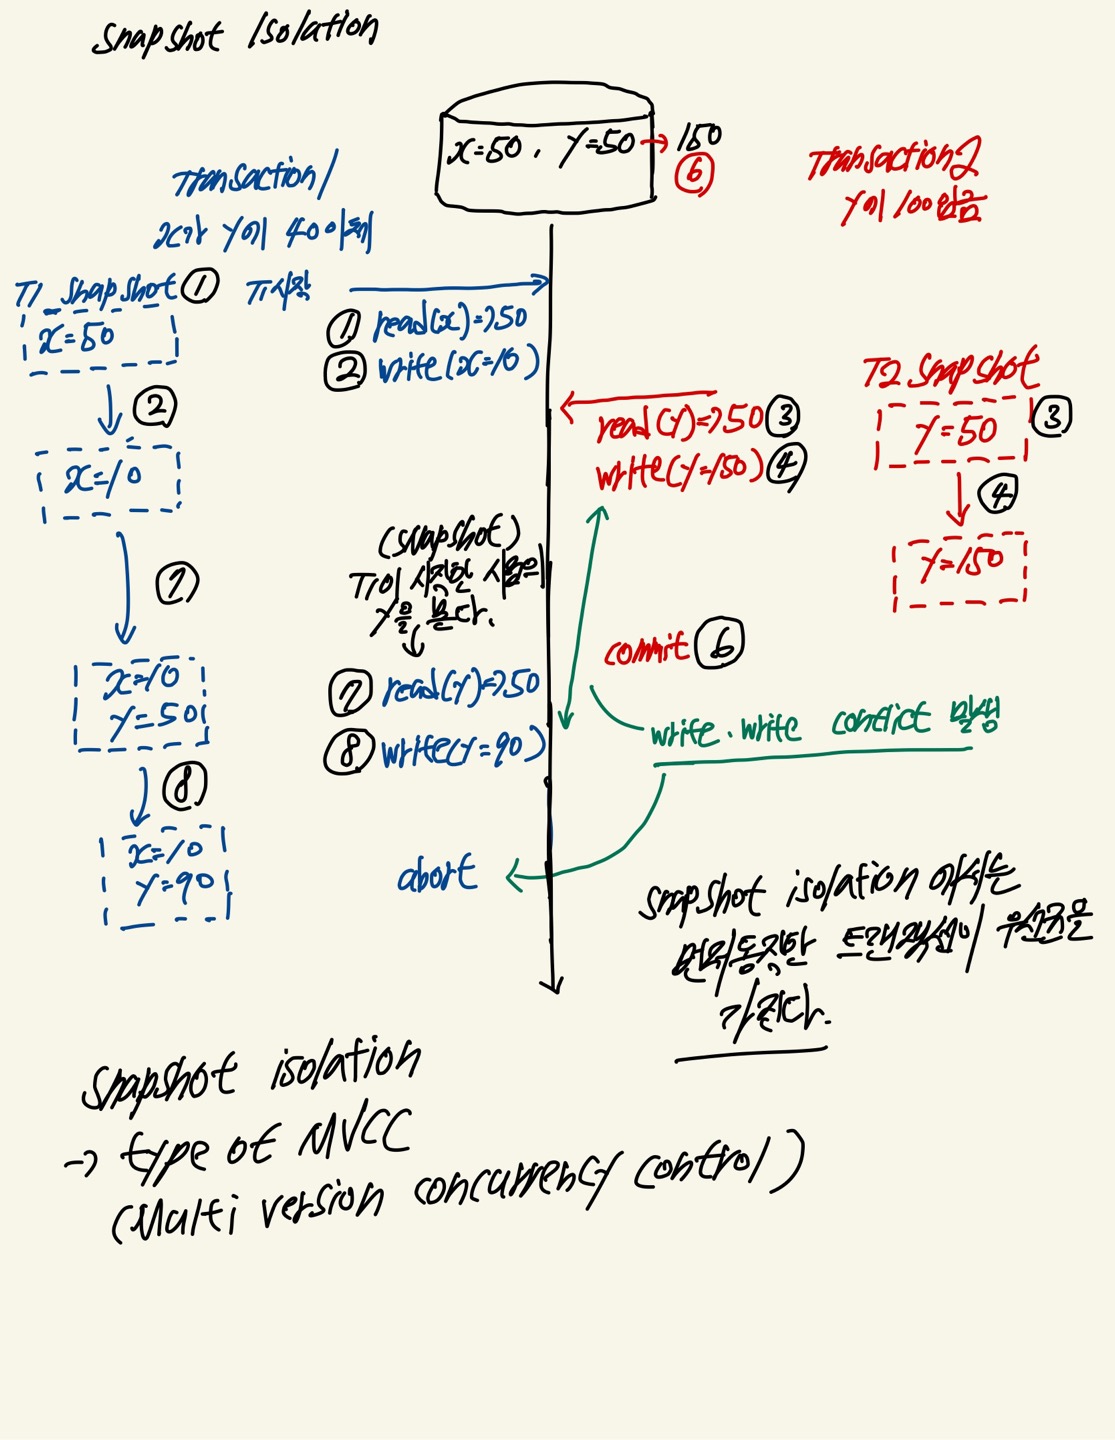 Snapshot Isolation
x=50, y=50 → 150
⑥
Transaction1
x가 y에 40이체
Transaction2
y에 100입금
T1 snapshot ①
T1시작
x=50
① read(x)=>50
② write(x=10)
②
x=10
T2 snapshot
read(y)=>50 ③
write(y=150) ④
y=50
③
④
y=150
(snapshot)
T1이 시작한 시점은
y을 본다.
↓
⑦
commit ⑥
x=10
y=50
⑦ read(y)=>50
⑧ write(y=90)
write.write conflict 발생
⑧
x=10
y=90
abort
snapshot isolation 에서는
먼저동작한 트랜잭션이 우선권을
가진다.
Snapshot isolation
→ type of MVCC
(Multi version concurrency control)